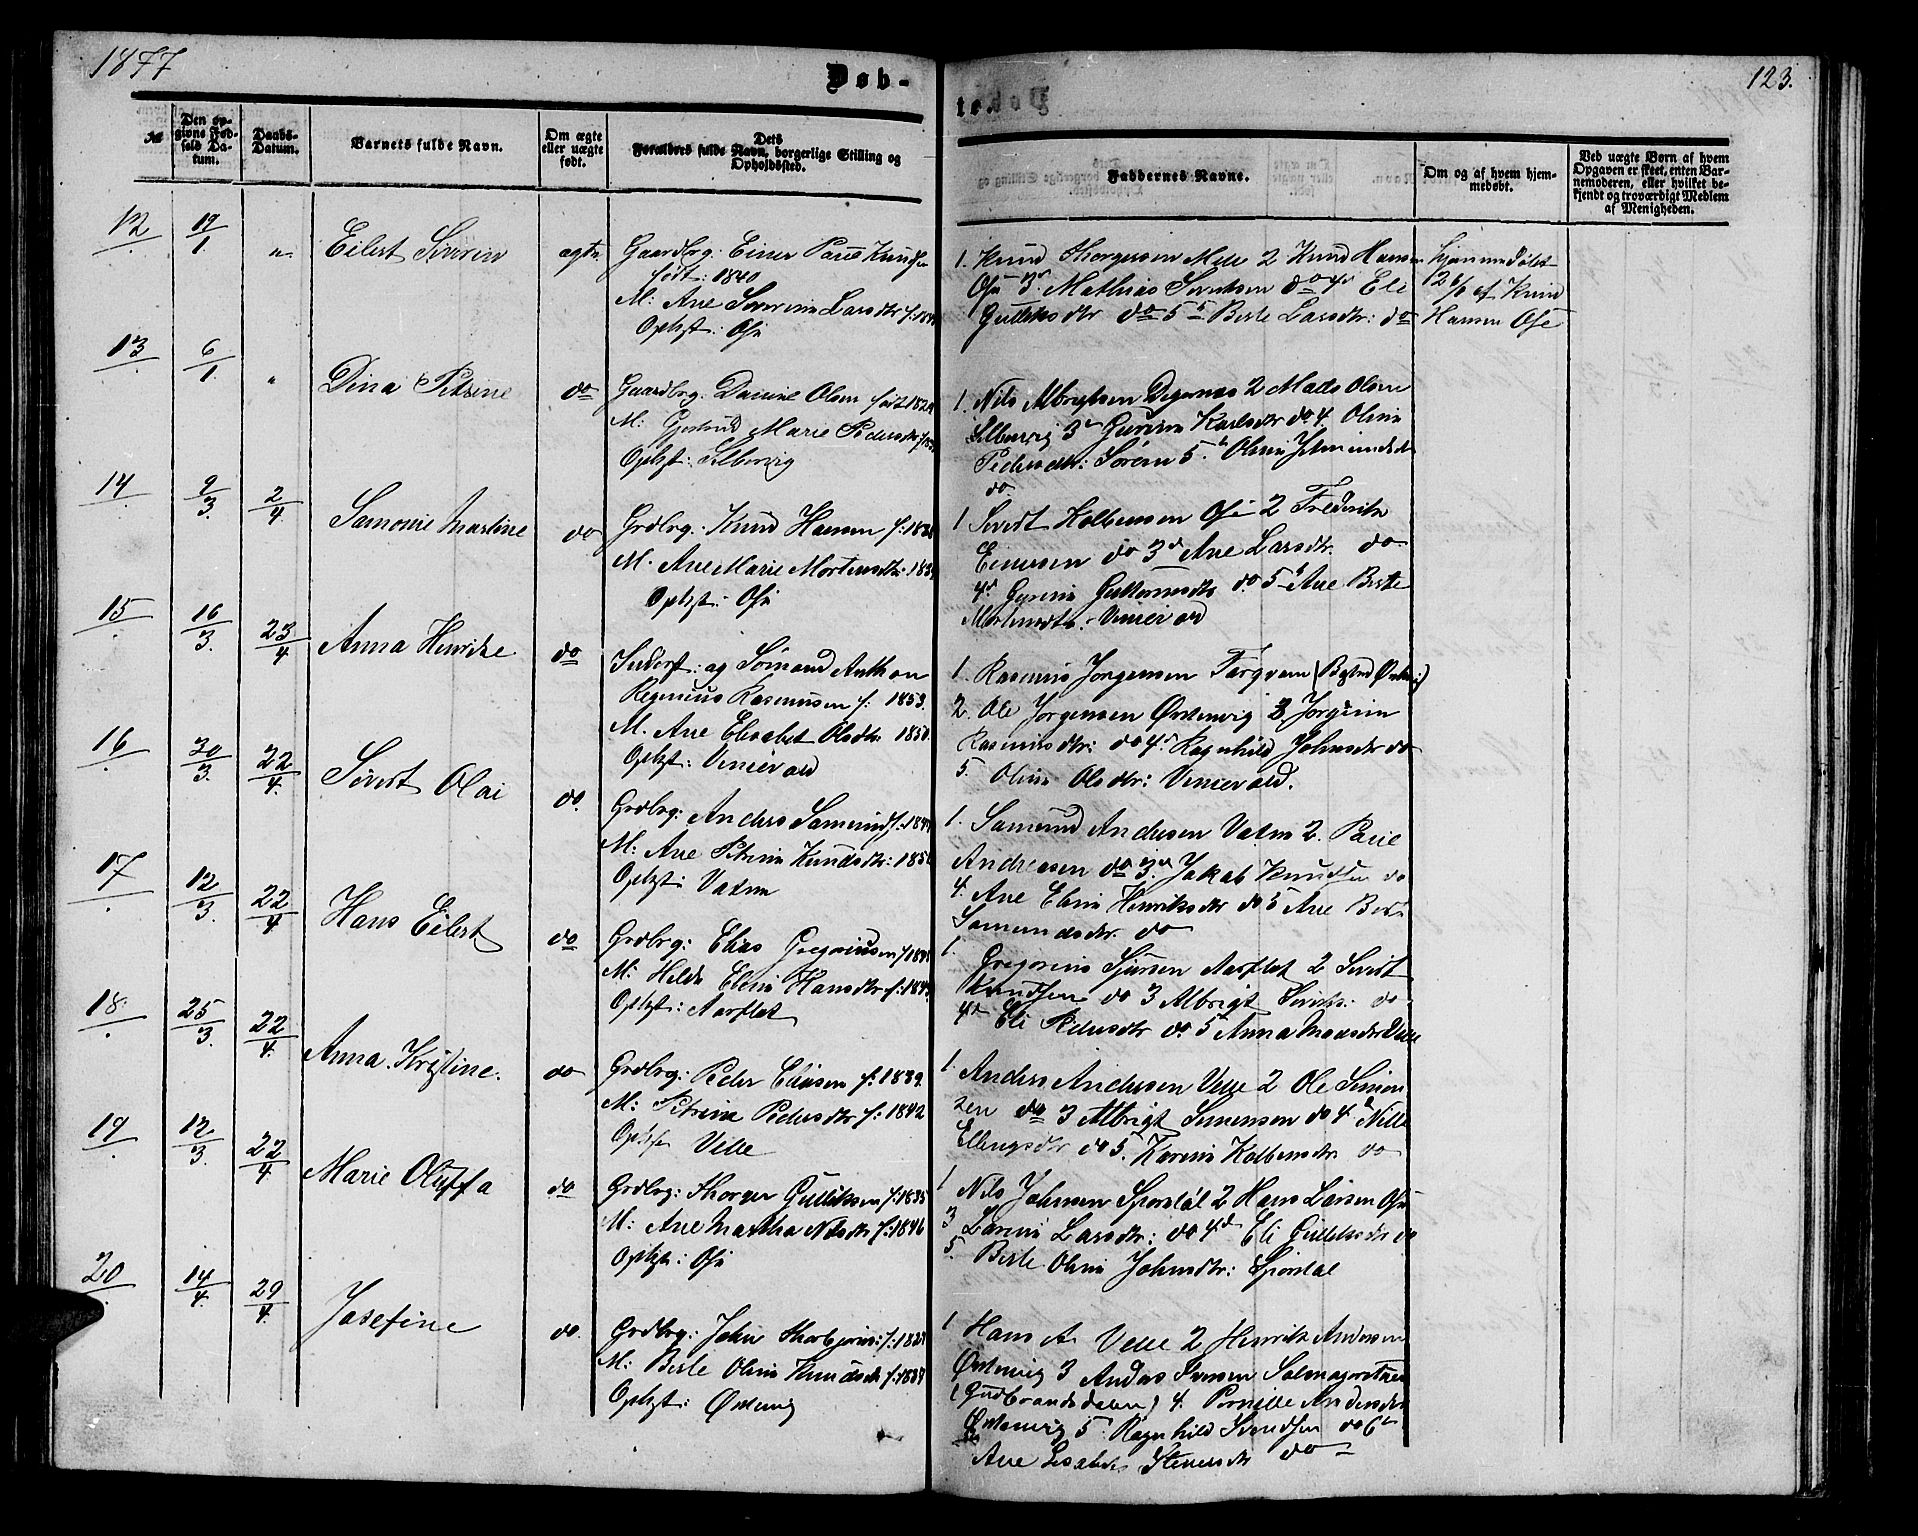 1877
Døb-
te.
123.
№
Den op-
givne Fød-
sels Da-
tum.
Daabs-
Datum.
Barnets fulde Navn.
Om ægte
eller uægte
født.
Dets
Forældres fulde Navn, borgerlige Stilling og
Opholdssted.
Faddernes Navne.
Om og af hvem hjem-
medøbt.
Ved uægte Børn af hvem
Opgaven er skeet, enten Bar-
nemoderen, eller hvilket be-
kjendt og troværdigt Medlem
af Menigheden.
12 19/1 " Eilert Severin ægte Gaardbrg: Einer Paul Knudsen
født: 1840
M: Ane Severine Larsdtr f:
Ophgt: Ose
1. Knud Thorgersen Melle 2 Knud Hansen
Ose 3. Mathias Sivertsen do 4 Eli
Gulliksdtr do 5 Berte Larsdtr: do
hjemmedøbt
af Knud
Hansen Ose
13 6/1 " Dina Petrine do Gaardbrg: Daniel Olsen født
M: Gertrud Marie Pedersdtr
Ophgt:
1. Nils Albrigtsen Digernes 2 Mads Olsen
3 Gurine Karlsdtr do 4. Oline
Pedersdtr: 5. Oline
do.
14 9/3 2/4 Samonie Martine do Grdbrg: Knud Hansen f:
M. Ane Marie Mortensdtr:
Ophgt: Ose
1 Sivert Kolbensen Ose 2 Fredrik
Einersen do 3 Ane Larsdtr. do
4 Gurine Guttormsdtr do 5 Ane Berte
Mortensdtr. Viniervold
15 16/3 23/4 Anna Henrikke do Inderst: og Sömand Anthon
Reginius Rasmussen f: 1853.
M. Ane Elisabet Olsdtr 1850.
Ophgt: Viniervold
1. Rasmus Jörgensen Færgvem
2. Ole Jorgensen Ørstenvig 3 Jorgine
Rasmusdtr: do 4. Ragnhild Johnsdtr do
5. Oline Olsdtr: Viniervold.
16 30/3 22/4 Sivert Olai do. Grdbrg: Anders Samund f:
M: Ane Petrine Knudsdtr: 185
Ophgt: Vatne
1. Samund Andersen Vatne 2. Paul
Andreasen do 3. Jakob Knudsen do
4. Ane Eline Henriksdtr do 5 Ane Berte
Samundsdtr. do
17 12/3 22/4 Hans Eilert do Grdbrg: Elias Gregoriusen f
M: Hilda Eline Hansdtr f:
Ophgt: Aarflot
1. Gregorius Sjursen Aarflot 2 Sivert
Knudsen do 3 Albrigt Siverts: do
4 Eli Pedersdtr do 5 Anna
18 25/3 22/4 Anna Kristine. do Grdbrg: Peder Eliasen f: 1839.
M: Petrine Pedersdtr f: 1842
Ophgt Velle
1. Anders Andersen Velle 2 Ole Simon
sen do 3 Albrigt Simensen do 4 Nille
Ellingsdtr do 5. Karine Kolbensdtr do
19 12/3 22/4 Marie Oluffa do Grdbrg: Thorger Gulliksen f: 1835
M: Ane Martha Nilsdtr f: 1846
Ophgt: Ose
1 Nils Johnsen Sporstöl 2 Hans Larsen Ose
3 Larine Larsdtr: do 4. Eli Gulliksdtr do
5. Berte Oline Johnsdtr: Sporstøl
20 14/4 29/4 Josefine do. Grdbrg: John Thorbjörns: f:
M: Berte Oline Knudsdtr f:
Ophgt: Ørstenvig
1 Hans A. Velle 2 Henrik Andersen
Ørstenvig 3 Andas Iversen
(Gudbrandsdalen) 4. Pernille Andersdtr
Ørstenvig 5 Ragnhild Knudsen do 6
Ane Lisabet Steversdtr do